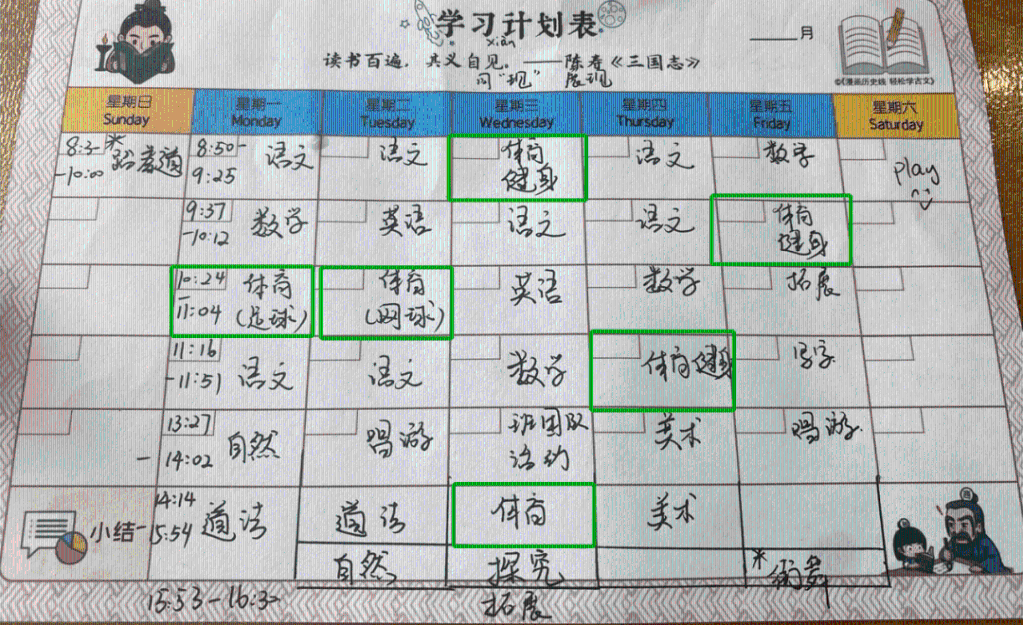 学习计划表
月
xiàn
读书百遍,其义自见。——陈寿《三国志》
同"现" 展现
©《漫画历史线 轻松学古文》
星期日 星期一 星期二 星期三 星期四 星期五 星期六
Sunday Monday Tuesday Wednesday Thursday Friday Saturday
8:50-9:25 语文 语文 体育健身 语文 数学 play
-10:00 跆拳道
9:37-10:12 数学 英语 语文 语文 体育健身
10:24-11:04 体育(足球) 体育(网球) 英语 数学 拓展
11:16-11:51 语文 语文 数学 体育健身 写字
13:27-14:02 自然 唱游 班团队活动 美术 唱游
小结 14:14 道法 道法 体育 美术
自然 探究 *街舞
拓展